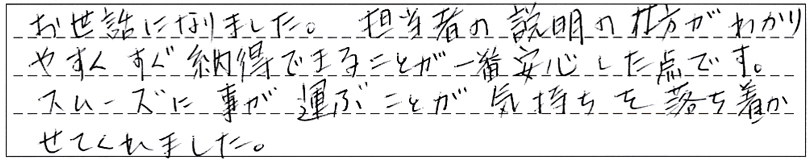 お世話になりました。 担当者の説明の仕方がわかり
やすくすぐ納得できることが一番安心した点です。
スムーズに事が運ぶことが気持ちを落ち着か
せてくれました。